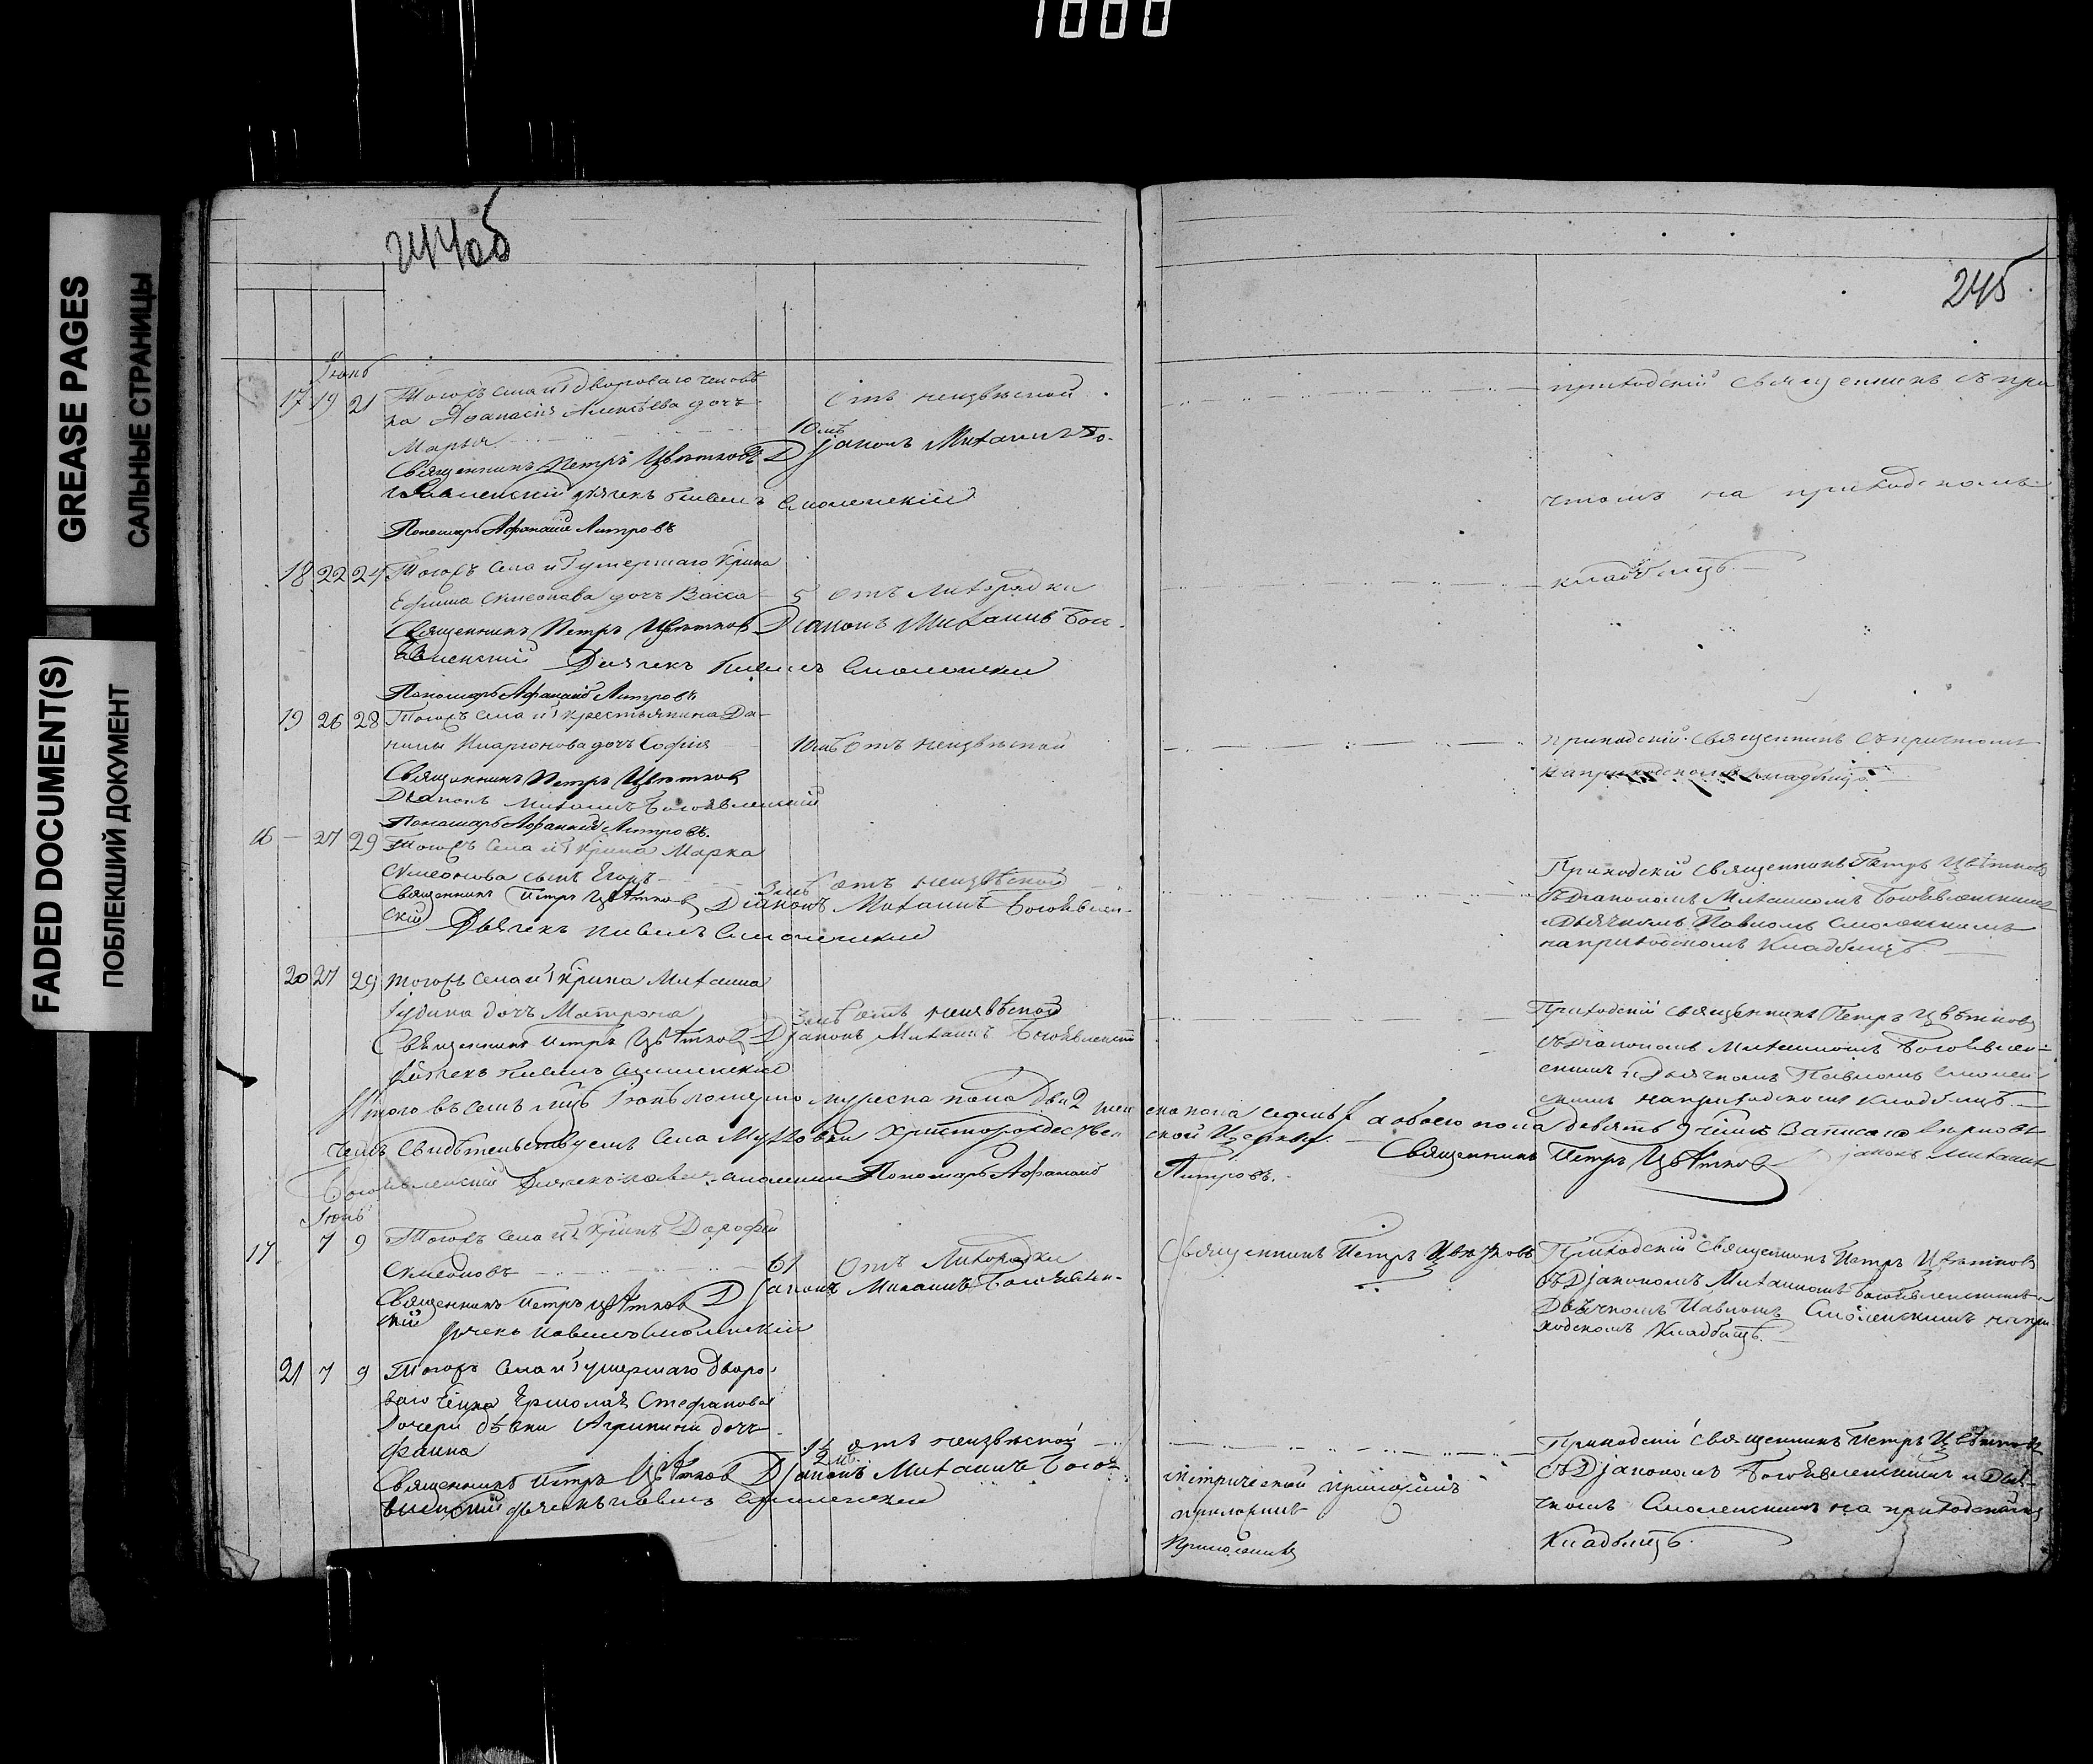 1000
GREASE PAGES
САЛЬНЫЕ СТРАНИЦЫ
FADED DOCUMENT(S)
ПОБЛЕКШИЙ ДОКУМЕНТ
244об
245
Июнь
17 19 21 Тогожъ села и двороваго челове
ка Афанасія Алексѣева дочь
Марья
10 мѣ
Отъ неизвѣстной
Священникъ Петръ Цвѣтковъ Діаконъ Михаилъ Бо-
гоявленскій дьячекъ Павелъ Смоленскій
Пономарь Афанасій Петровъ
приходскій священникъ съ при
чтомъ на приходскомъ
кладбищѣ
18 22 24 Тогожъ села и умершаго крина
Ефима Симеонова дочь Васса 5 Отъ лихорадки
Священникъ Петръ Цвѣтковъ Діаконъ Михаилъ Бого
явленскій Дьячекъ Павелъ Смоленскій
Пономарь Афанасій Петровъ
19 26 28 Тогожъ села и крестьянина Да-
нилы Иларіонова дочь Софія 10 мѣ Отъ неизвѣстной
Священникъ Петръ Цвѣтковъ
Діаконъ Михаилъ Богоявленскій
Пономарь Афанасій Петровъ
приходскій священникъ съ причтомъ
на приходскомъ кладбищѣ
16 27 29 Тогожъ села и крина Марка
Симеонова сынъ Егоръ отъ неизвѣстной
Священникъ Петръ Цвѣтковъ Діаконъ Михаилъ Богоявлен-
скій Дьячекъ Павелъ Смоленскій
Приходскій священникъ Петръ Цвѣтковъ
съ Діакономъ Михаиломъ Богоявленскимъ
и Дьячкомъ Павломъ Смоленскимъ
на приходскомъ кладбищѣ.
20 27 29 тогожъ села и крина Михаила
Іудина дочь Матрона отъ неизвѣстной
Священникъ Петръ Цвѣтковъ Діаконъ Михаилъ Богоявленскій
Дьячекъ Павелъ Смоленскій
Приходскій священникъ Петръ Цвѣтковъ
съ Діакономъ Михаиломъ Богоявлен-
скимъ и Дьячкомъ Павломъ Смолен
скимъ на приходскомъ кладбищѣ.
Итого въ семъ мцѣ Іюнѣ померло мужеска пола два 2 жен ска пола седмь 7 а обоего пола девять 9 чѣмъ
Свидѣтельствуемъ Села Христорождествен ской Церкви. Священникъ Петръ Цвѣтковъ Діаконъ Михаилъ
Богоявленскій Дьячекъ Павелъ Смоленскій Пономарь Афанасій Петровъ.
Іюль
17 7 9 Тогожъ села и кринъ Дорофей
Симеоновъ 61 Отъ Лихорадки
Священникъ Петръ Цвѣтковъ Діаконъ Михаилъ Богоявлен-
скій
Дьячекъ Павелъ Смоленскій
Священникъ Петръ Цвѣтковъ
Приходскій Священникъ Петръ Цвѣтковъ
съ Діакономъ Михаиломъ Богоявленскимъ и
Дьячкомъ Павломъ Смоленскимъ на при
ходскомъ Кладбищѣ.
21 7 9 Тогожъ Села и умершаго Дворо
ваго Ермолая Стефанова
дочери дѣвки дочь
Фаина отъ неизвѣстной
Священникъ Петръ Цвѣтковъ Діаконъ Михаилъ Богоя
вленскій дьячекъ Павелъ Смоленскій
Приходскій Священникъ Петръ Цвѣтковъ
съ Діакономъ Богоявленскимъ и Дья
чкомъ Смоленскимъ на приходскомъ
Кладбищѣ.